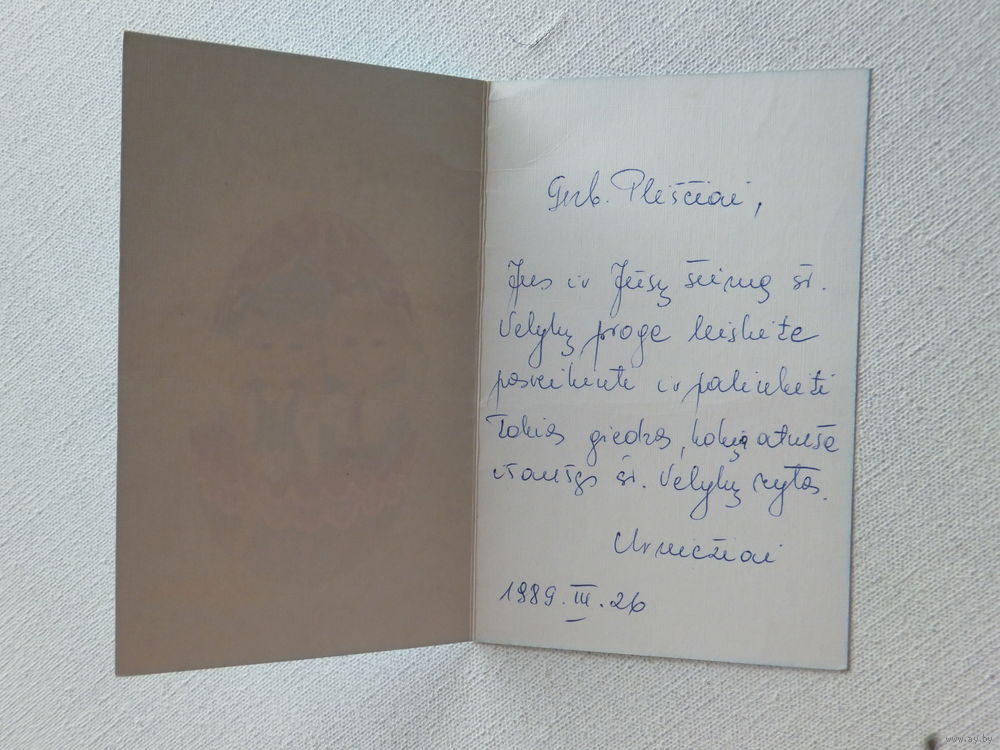 Gerb. Pleiščiai,
Jus ir Jūsų šeimą šv.
Velykų proga leiskite
pasveikinti ir palinkėti
tokios giedros, kokią atneša
šv. Velykų rytas.
1989.III.26
www.ay.by